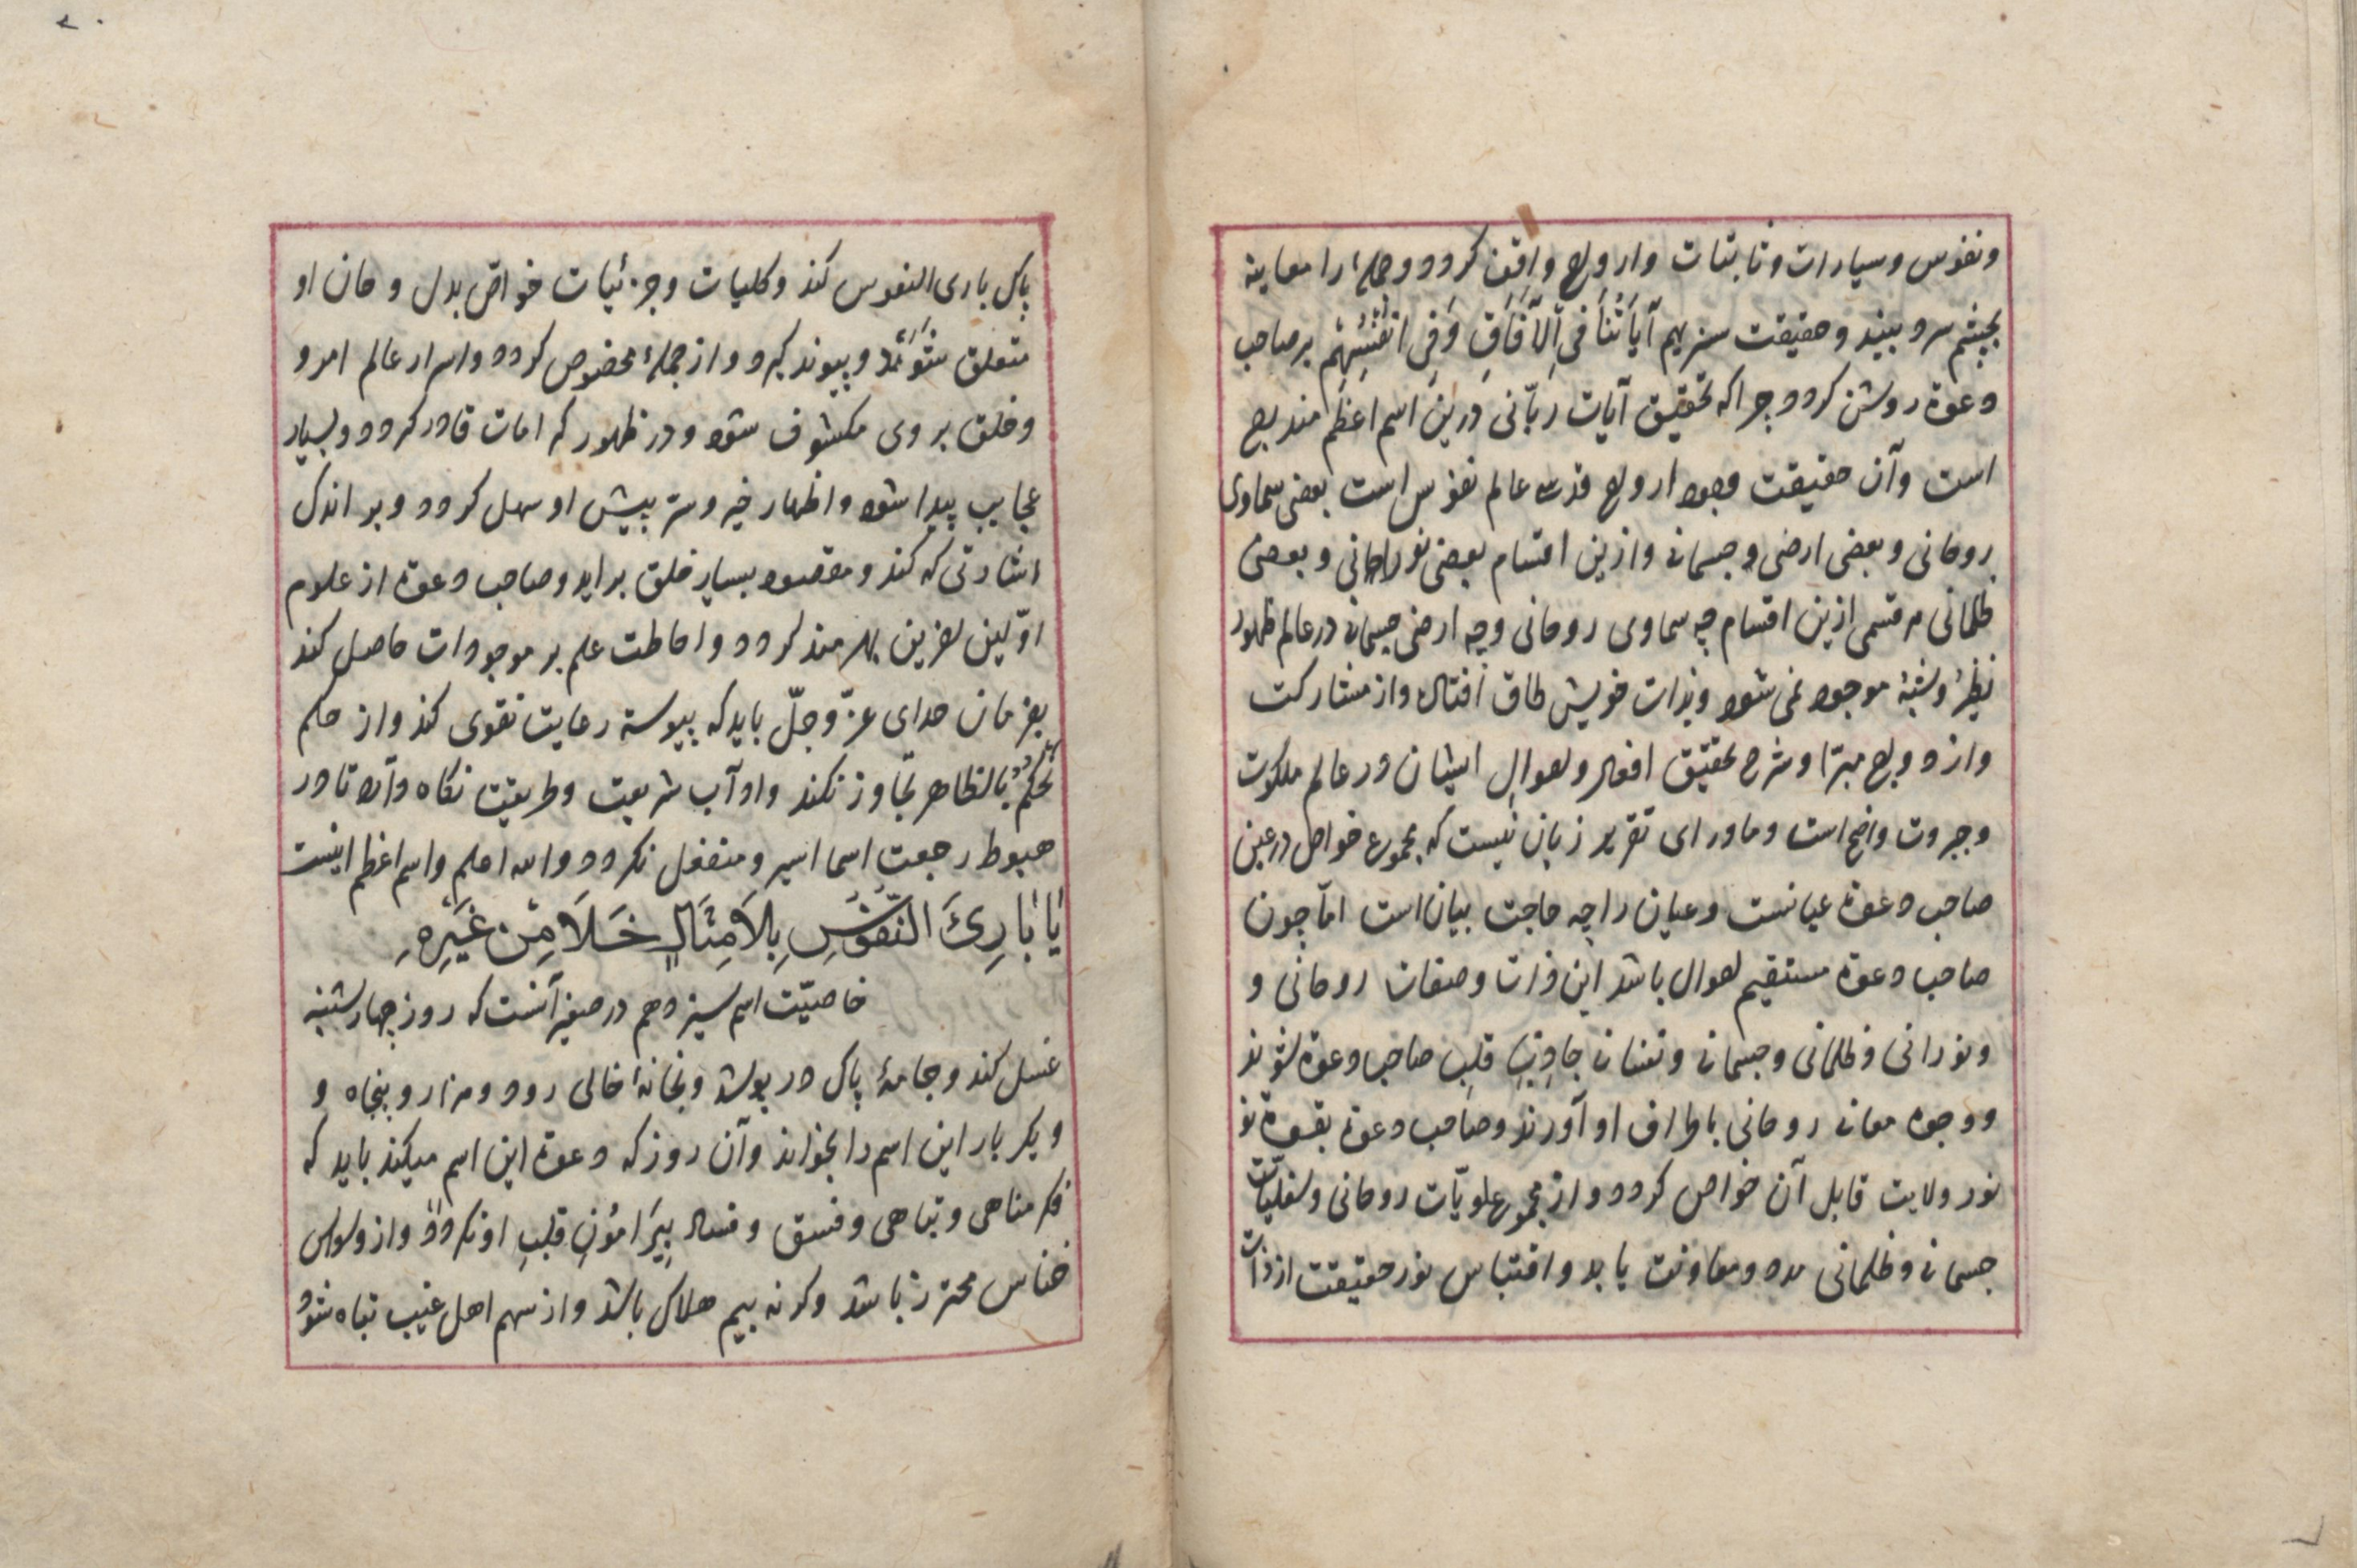 ونفوس وسیارات وثابتات وارواح واقف کردد وجمله را معاینه
بچشم سر ببیند وحقیقت سنریهم آیَاتُنَا فی اْلآفَاقِ وَفِی انْفُسِهِمْ بر صاحب
دعوة روشن کردد چراکه تحقیق آیات ربّانی درین اسم اعظم مندرج
است وآن حقیقت وجود ارواح قدسی عالم نفوس است بعضی سماوی
روحانی وبعضی ارضی وجسمانی وازین اقسام بعضی نورانی وبعضی
ظلمانی هر قسمی ازین اقسام چه سماوی روحانی وچه ارضی جسمانی در عالم ظهور
نظیر وشبه موجود نمی شود وبذات خویش طاق افتاده واز مشارکت
وازدواج مبرّا وشرح تحقیق افعال واحوال ایشان در عالم ملکوت
وجبروت واضح است وماورای تقریر زبان نیست که مجموع خواص در عین
صاحب دعوة عیانست وعیان را چه حاجت بیان است امّا چون
صاحب دعوة مستقیم احوال باشد این ذات وصفات روحانی و
ونورانی وظلمانی وجسمانی ونفسانی جاذب قلب صاحب دعوة شوند
ووجوه معانی روحانی باطراف او آورند وصاحب دعوة بقوة
نور ولایت قابل آن خواص کردد واز مجموع علویّات روحانی وسفلیّات
جسمانی وظلمانی مدد ومعاونت یابد واقتباس نور حقیقت از ذات
پاک باری النفوس کند وکلیات وجزئیات خواصّ بدل وجان او
متعلق شوند وپیوند کیرد واز جملهٔ مخصوص کردد واسرار عالم امر و
وخلق بر وی مکشوف شود ودر ظهور کرامات قادر کردد وبسیار
عجایب پیدا شود واظهار خیر وشر پیش او سهل کردد وبر اندک
اشارتی که کند ومقصود بسیار خلق براید وصاحب دعوة از علوم
اوّلین اخرین بهرمند کردد واحاطت علم بر موجودات حاصل کند
بفرمان خدای عزّ وجلّ باید که پیوسته رعایت تقوی کند واز حکم
نحکم بالظاهر تجاوز نکند وادآب شریعت وطریقت نکاه دارد تا در
هبوط رجعت اسما اسیر ومنفعل نکردد والله اعلم واسم اعظم اینست
یَا بَارِئَ النُّفُوسِ بِلَا مِثَالٍ خَلَا مِنْ غَیْرِهِ
خاصیّت اسم سیزدهم در صغیر آنست که روز چهارشنبه
غسل کند وجامهٔ پاک در پوشد وبخانهٔ خالی رود وهزار وپنجاه و
ویکبار این اسم را بخواند وآن روز که دعوة این اسم میکند باید که
فکر مناهی وتباهی وفسق وفساد پیرَامُونِ قلبِ او نکردد واز وسواس
خناس محترز باشد وکرنه بیم هلاک باشد واز سهم اهل غیب تباه شود